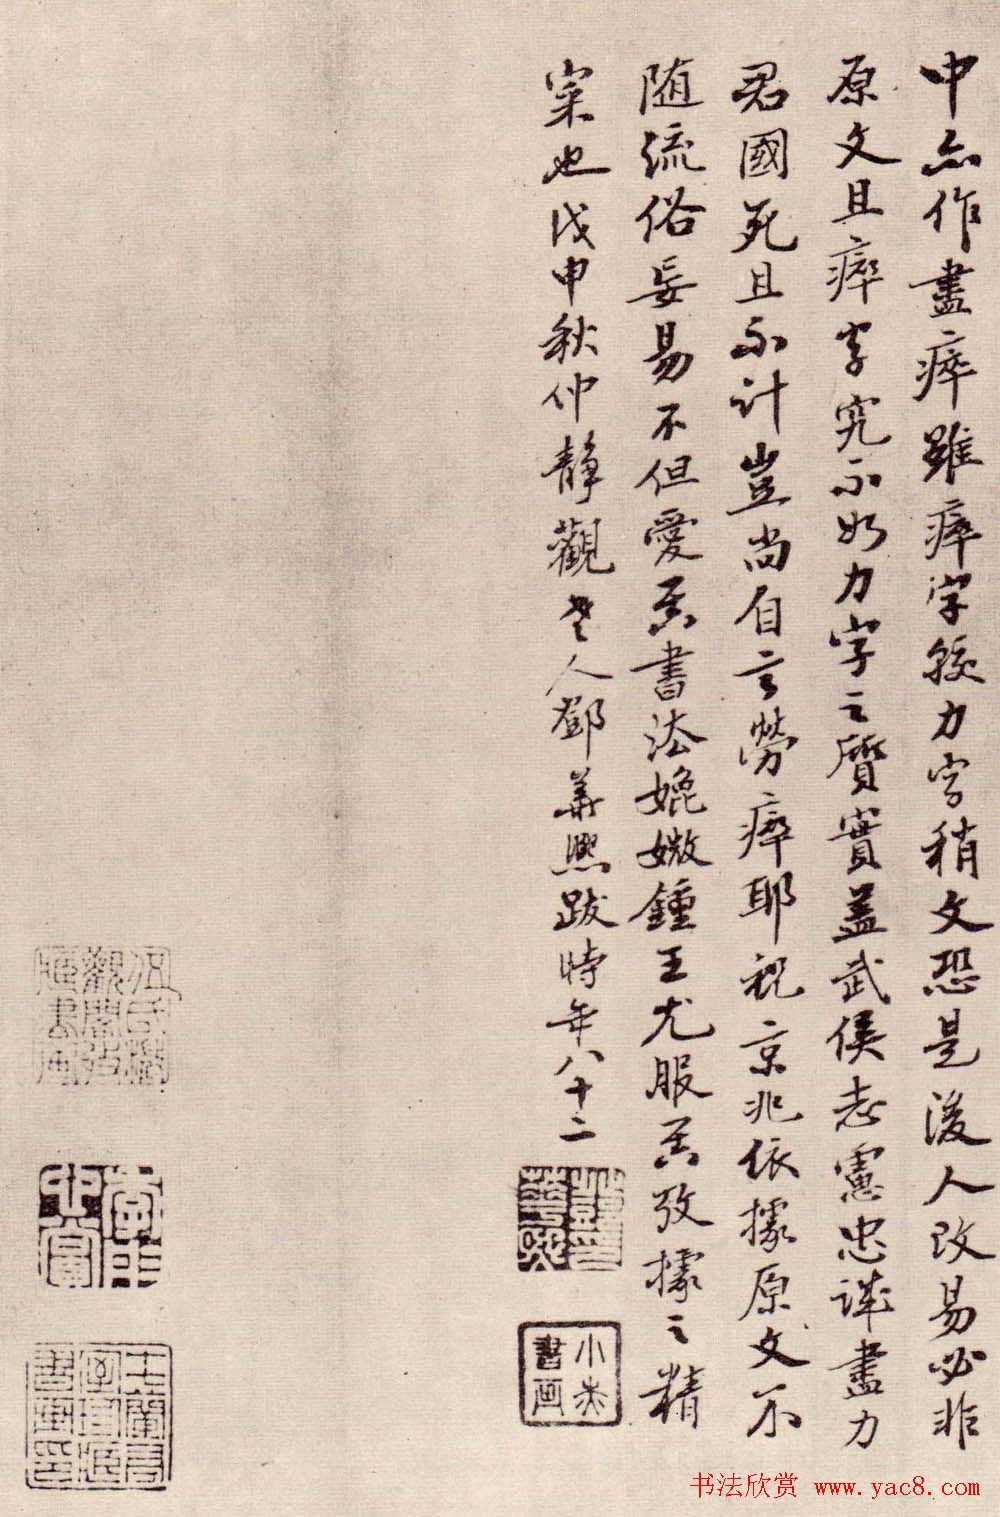 中亦作盡瘁雖瘁字較力字稍文恐是後人改易必非
原文且瘁字究不如力字之質實蓋武侯志慮忠誠盡力
君國死且不計豈尚自言勞瘁耶祝京兆依據原文不
随流俗妄易不但愛其書法媲媺鍾王尤服其攷據之精
案也戊申秋仲靜觀老人鄧華熙跋時年八十二
鄧華熙印
小赤
書画
書法欣赏 www.yac8.com